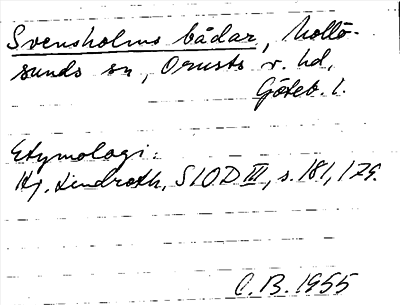 Svensholms bådar, Mollö-
sunds sn, Orusts v. hd,
Göteb. l.
Etymologi:
Hj. Lindroth, SIOD III, s. 181, 179.
C.B. 1955